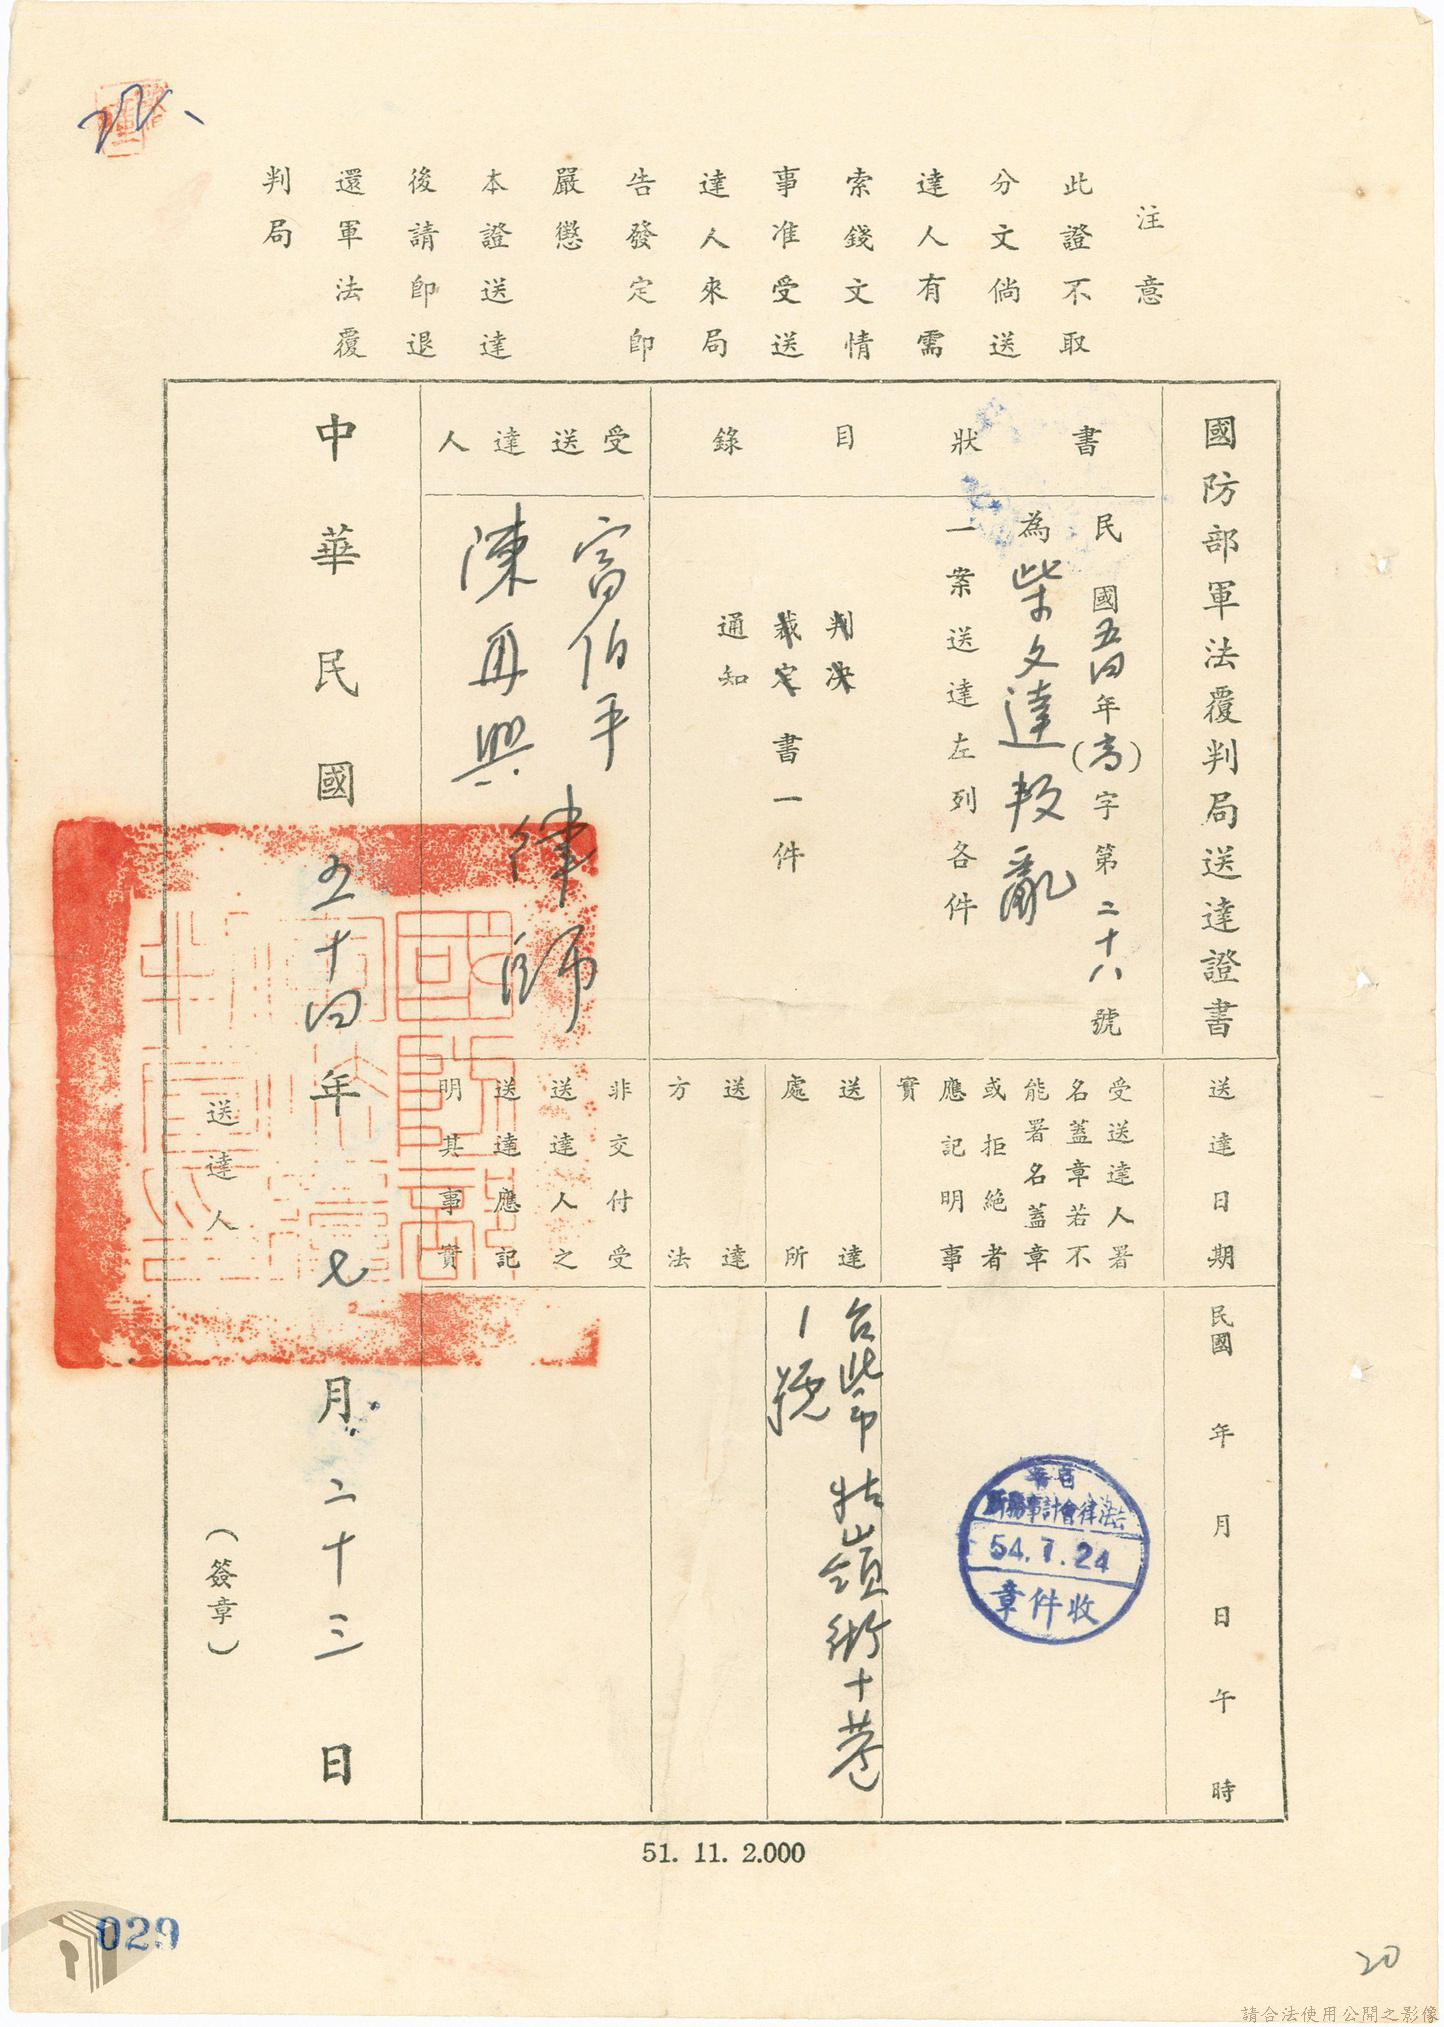 注意
此證不取
分文倘送
達人有需
索錢文情
事准受送
達人來局
告發定即
嚴懲
本證送達
後請即退
還軍法覆
判局
國防部軍法覆判局送達證書
書狀目錄
民國五四年(高)字第二十八號
為柴文達叛亂
一案送達左列各件
判決
裁定書一件
通知
受送達人
富伯平
陳再興
律師
送達日期
民國 年 月 日 午 時
受送達人署
名蓋章若不
能署名蓋章
或拒絕者
應記明事
實
法律會計事務所
54.7.24
收件章
送達
處所
台北市牯嶺街十巷
1號
送達
方法
非交付受
送達人之
送達應記
明其事實
中華民國五十四年七月二十三日
送達人 (簽章)
51. 11. 2.000
029
20
請合法使用公開之影像